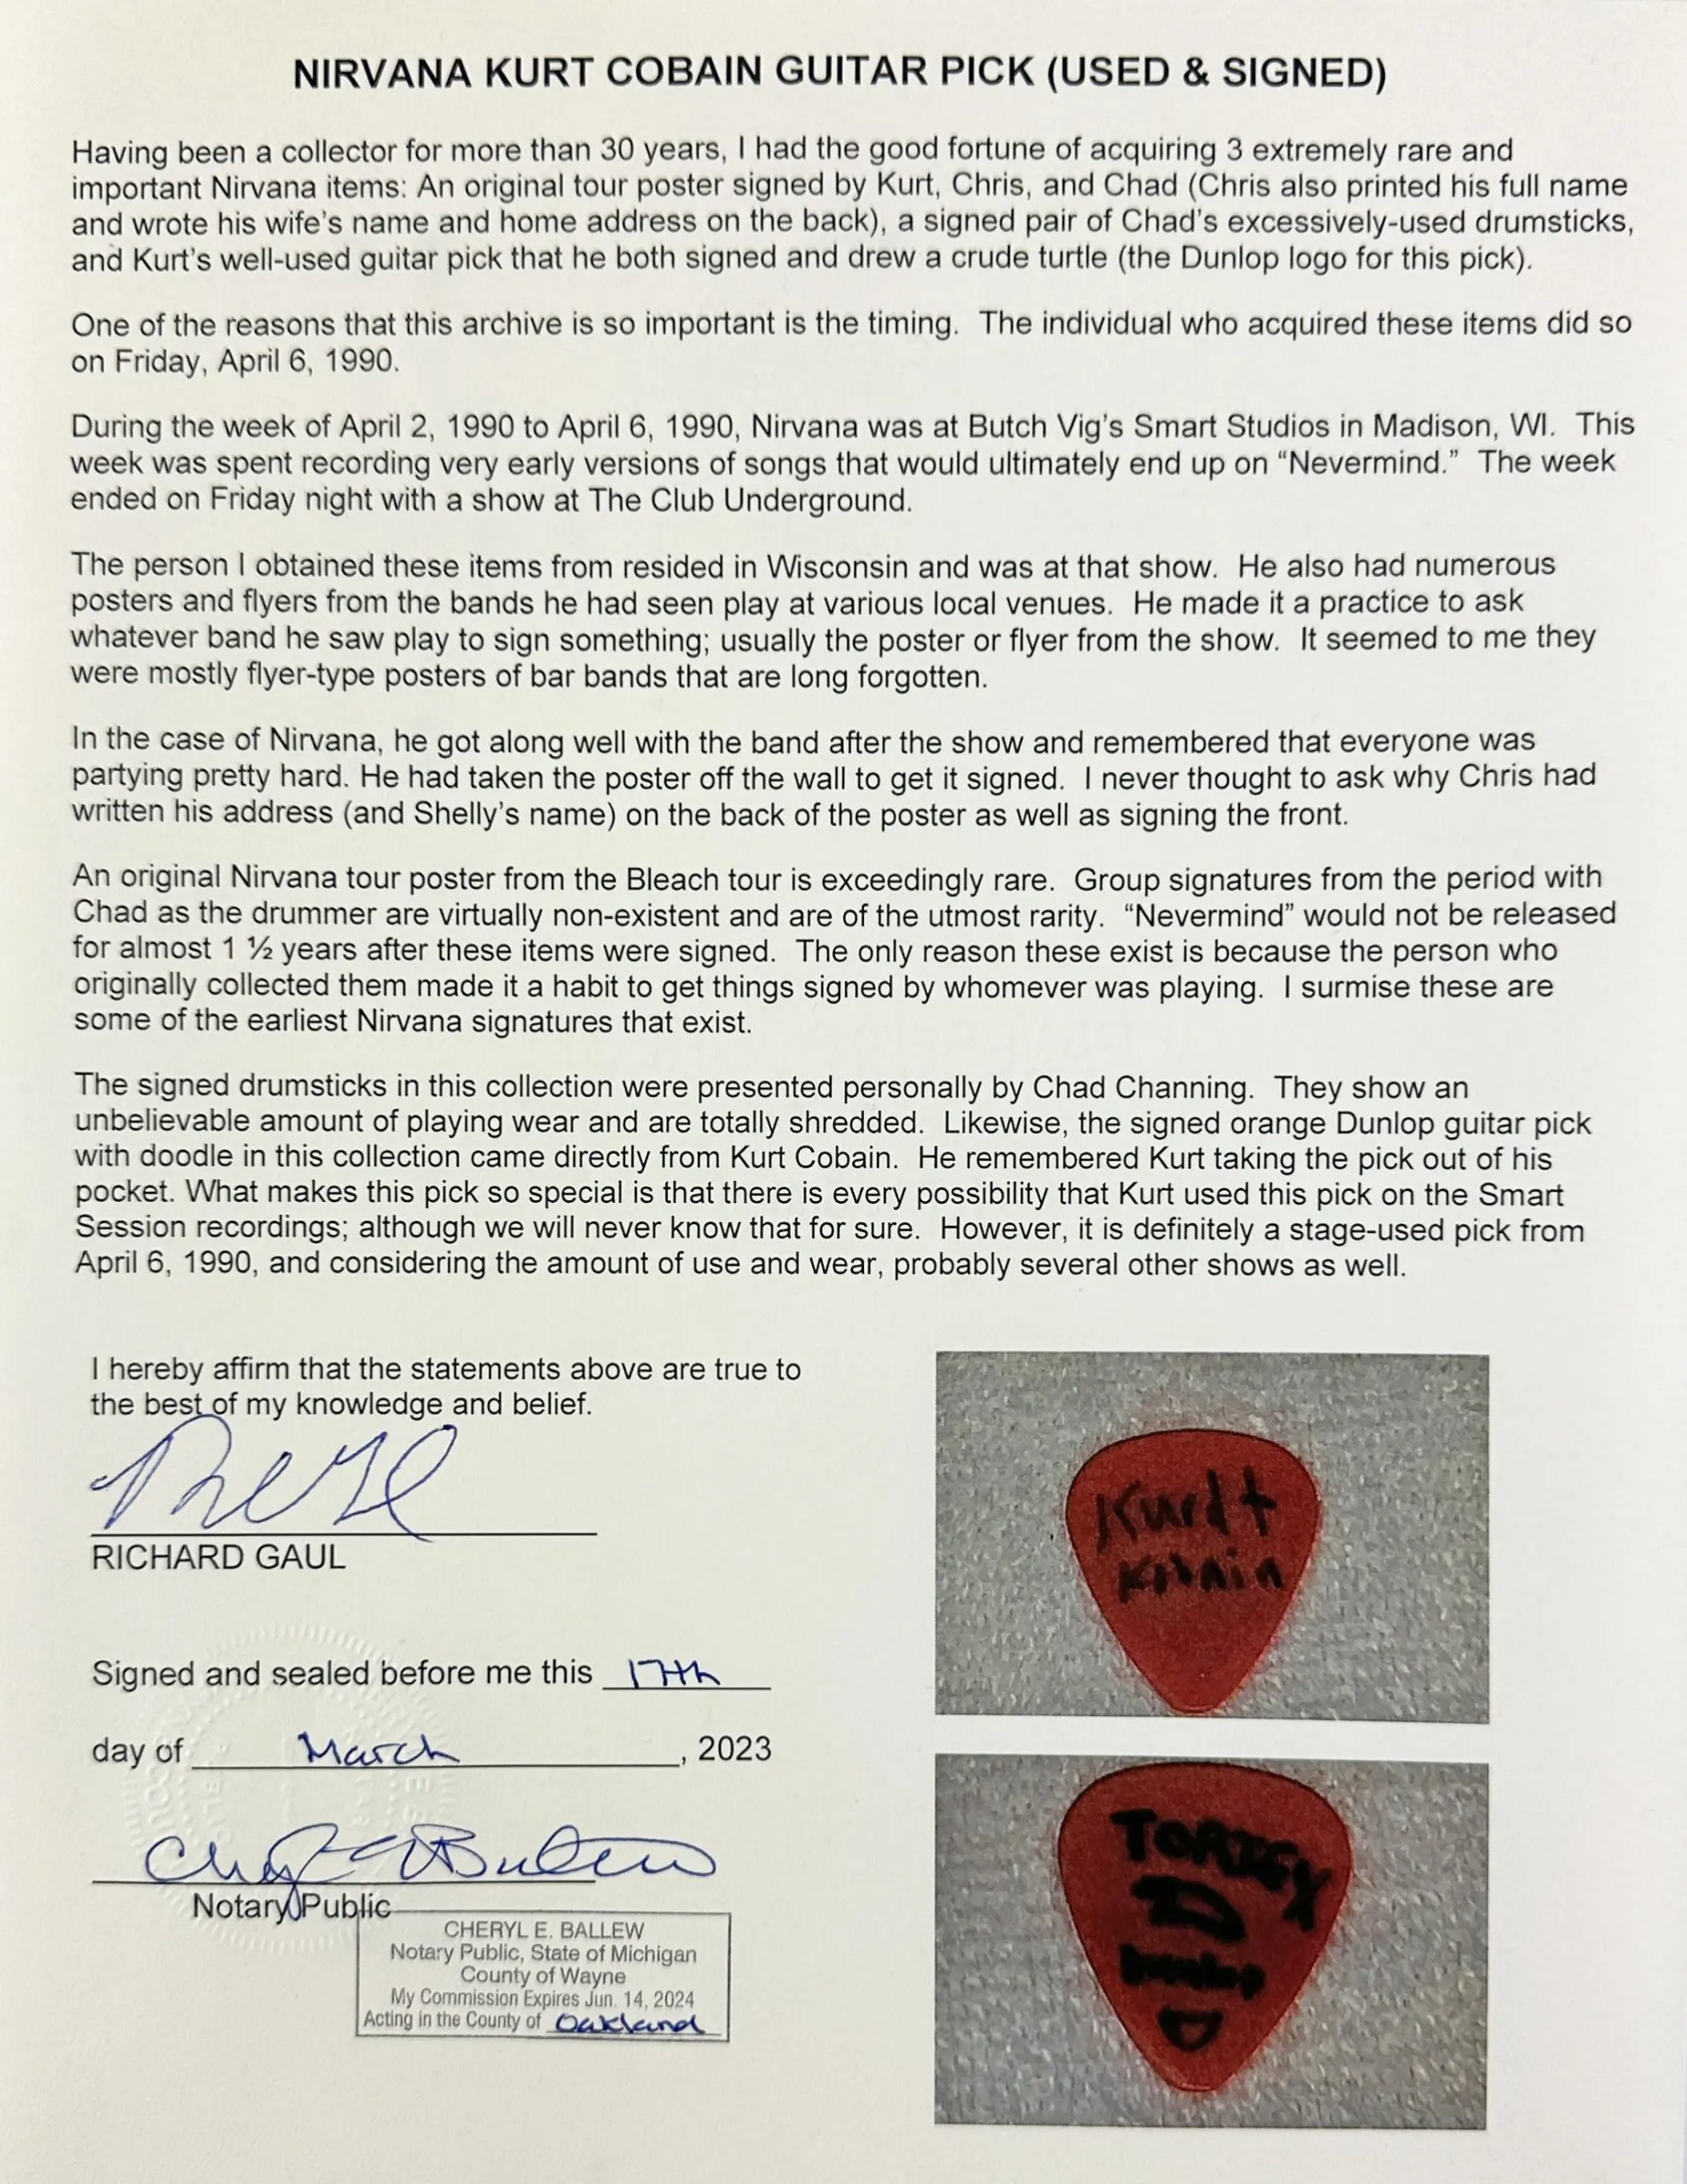 NIRVANA KURT COBAIN GUITAR PICK (USED & SIGNED)
Having been a collector for more than 30 years, I had the good fortune of acquiring 3 extremely rare and
important Nirvana items: An original tour poster signed by Kurt, Chris, and Chad (Chris also printed his full name
and wrote his wife’s name and home address on the back), a signed pair of Chad’s excessively-used drumsticks,
and Kurt’s well-used guitar pick that he both signed and drew a crude turtle (the Dunlop logo for this pick).
One of the reasons that this archive is so important is the timing.  The individual who acquired these items did so
on Friday, April 6, 1990.
During the week of April 2, 1990 to April 6, 1990, Nirvana was at Butch Vig’s Smart Studios in Madison, WI.  This
week was spent recording very early versions of songs that would ultimately end up on “Nevermind.”  The week
ended on Friday night with a show at The Club Underground.
The person I obtained these items from resided in Wisconsin and was at that show.  He also had numerous
posters and flyers from the bands he had seen play at various local venues.  He made it a practice to ask
whatever band he saw play to sign something; usually the poster or flyer from the show.  It seemed to me they
were mostly flyer-type posters of bar bands that are long forgotten.
In the case of Nirvana, he got along well with the band after the show and remembered that everyone was
partying pretty hard. He had taken the poster off the wall to get it signed.  I never thought to ask why Chris had
written his address (and Shelly’s name) on the back of the poster as well as signing the front.
An original Nirvana tour poster from the Bleach tour is exceedingly rare.  Group signatures from the period with
Chad as the drummer are virtually non-existent and are of the utmost rarity.  “Nevermind” would not be released
for almost 1 ½ years after these items were signed.  The only reason these exist is because the person who
originally collected them made it a habit to get things signed by whomever was playing.  I surmise these are
some of the earliest Nirvana signatures that exist.
The signed drumsticks in this collection were presented personally by Chad Channing.  They show an
unbelievable amount of playing wear and are totally shredded.  Likewise, the signed orange Dunlop guitar pick
with doodle in this collection came directly from Kurt Cobain.  He remembered Kurt taking the pick out of his
pocket. What makes this pick so special is that there is every possibility that Kurt used this pick on the Smart
Session recordings; although we will never know that for sure.  However, it is definitely a stage-used pick from
April 6, 1990, and considering the amount of use and wear, probably several other shows as well.
I hereby affirm that the statements above are true to
the best of my knowledge and belief.
RICHARD GAUL
Signed and sealed before me this 17th
day of March, 2023
Notary Public
CHERYL E. BALLEW
Notary Public, State of Michigan
County of Wayne
My Commission Expires Jun. 14, 2024
Acting in the County of Oakland
Kurdt
Kobain
TORTEX